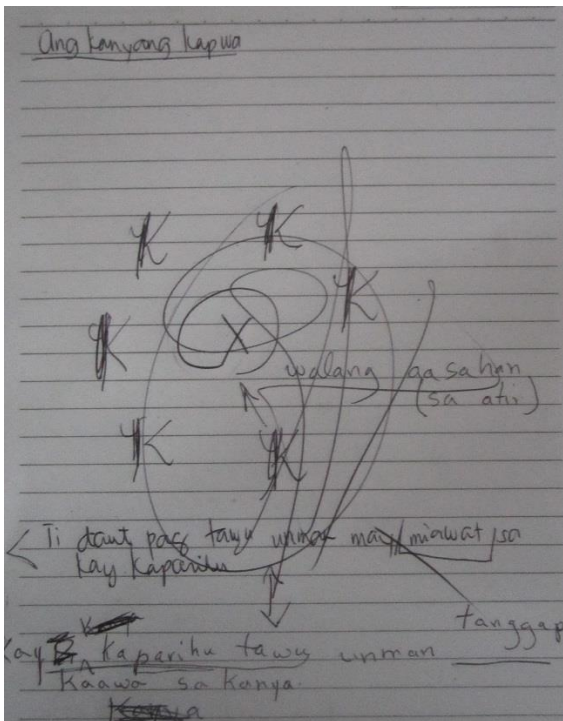 Ang kanyang kapwa
K
K
K
K
X
walang aasahan
(sa atii)
K
K
Ti daut pag tawu unman miawat sa
kay kaparihu
tanggap
Kay kaparihu tawu unman
kaawa sa kanya